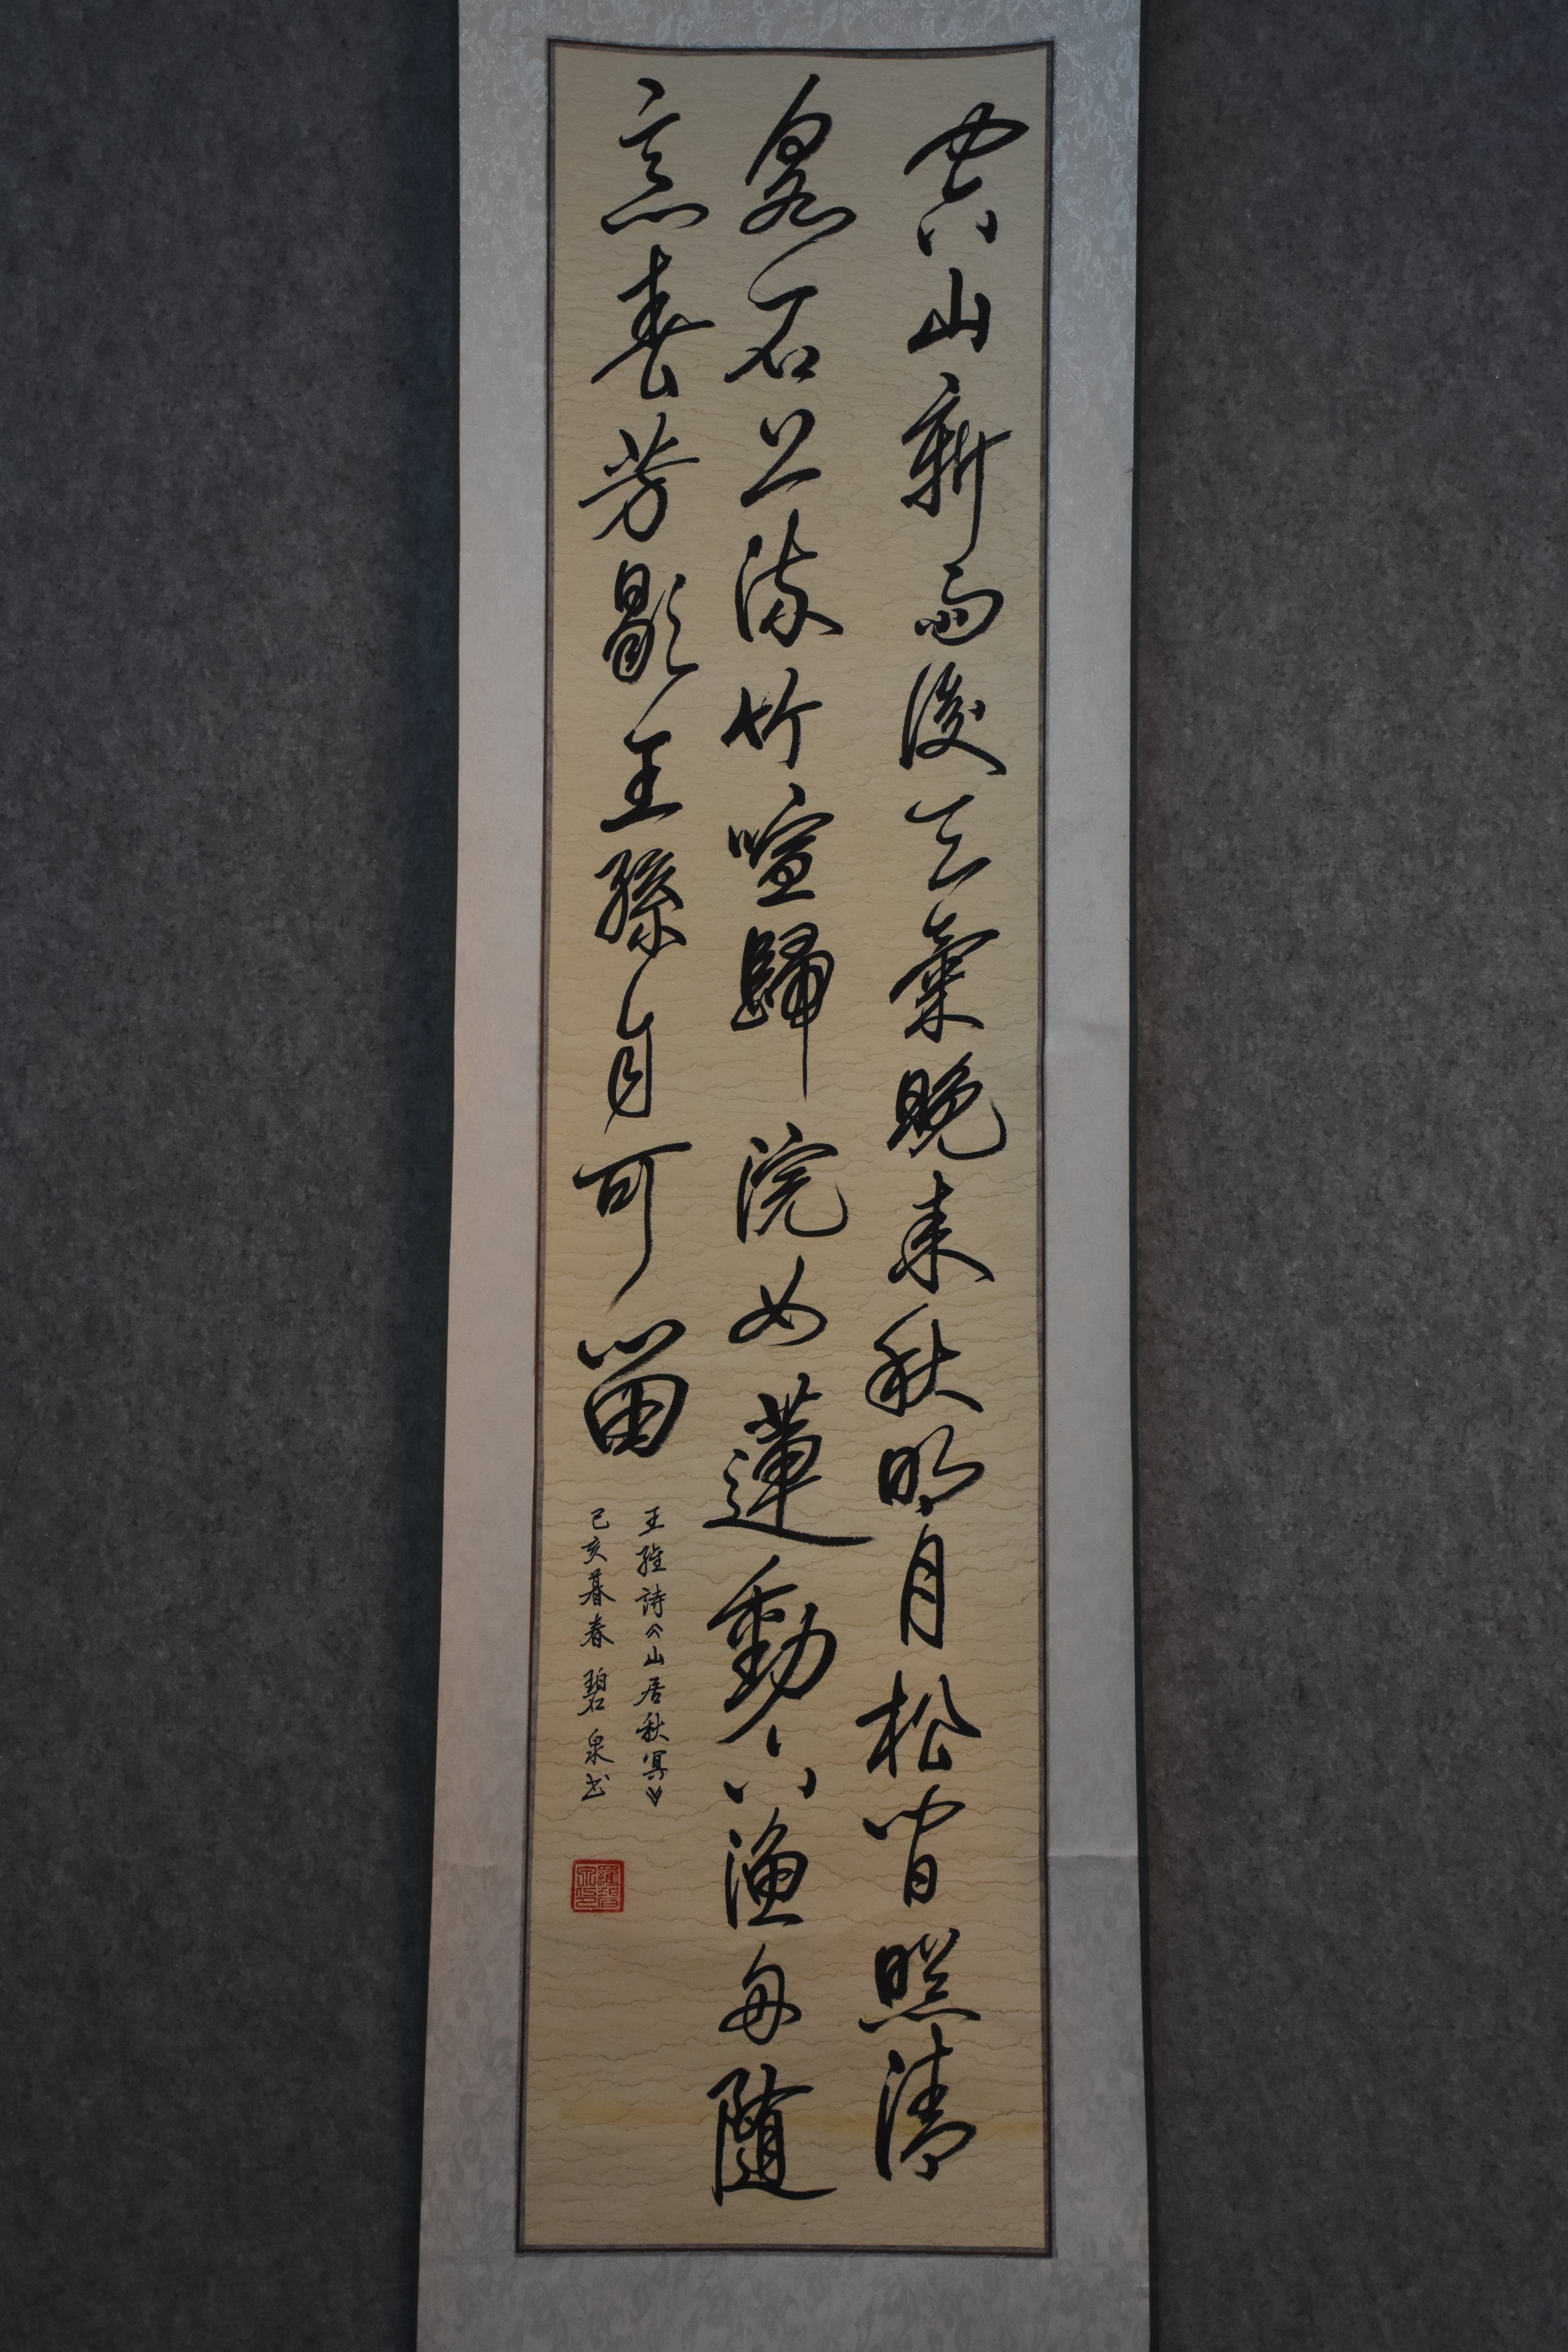 空山新雨後天氣晚来秋明月松間照清
泉石上流竹喧歸浣女蓮動下漁舟隨
意春芳歇王孫自可留
王維詩《山居秋冥》
己亥暮春 碧泉书
羅碧泉印